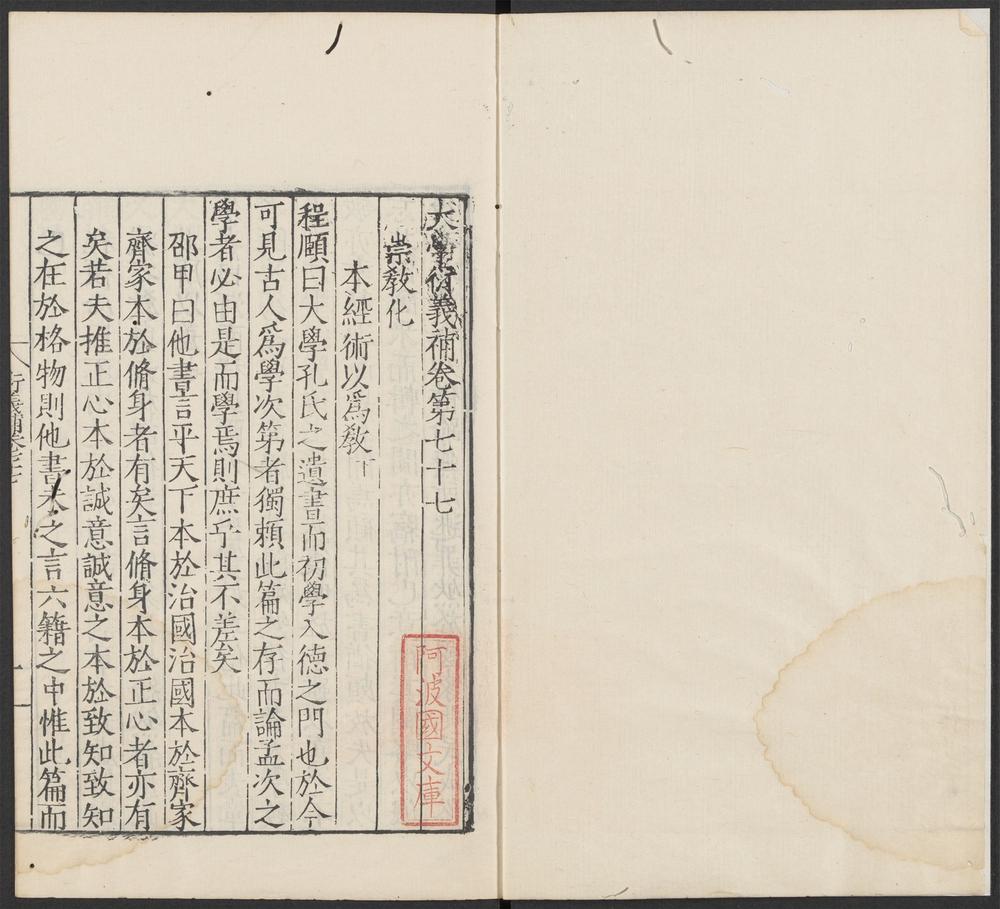 大學衍義補卷第七十七
崇敎化
本經術以爲敎下
程頤曰大學孔氏之遺書而初學入德之門也於今
可見古人爲學次第者獨頼此篇之存而論孟次之
學者必由是而學焉則庶乎其不差矣
邵甲曰他書言平天下本於治國治國本於齊家
齊家本於脩身者有矣言脩身本於正心者亦有
矣若夫推正心本於誠意誠意之本於致知致知
之在於格物則他書未之言六籍之中惟此篇而
衍義補卷七十七
一
阿波國文庫